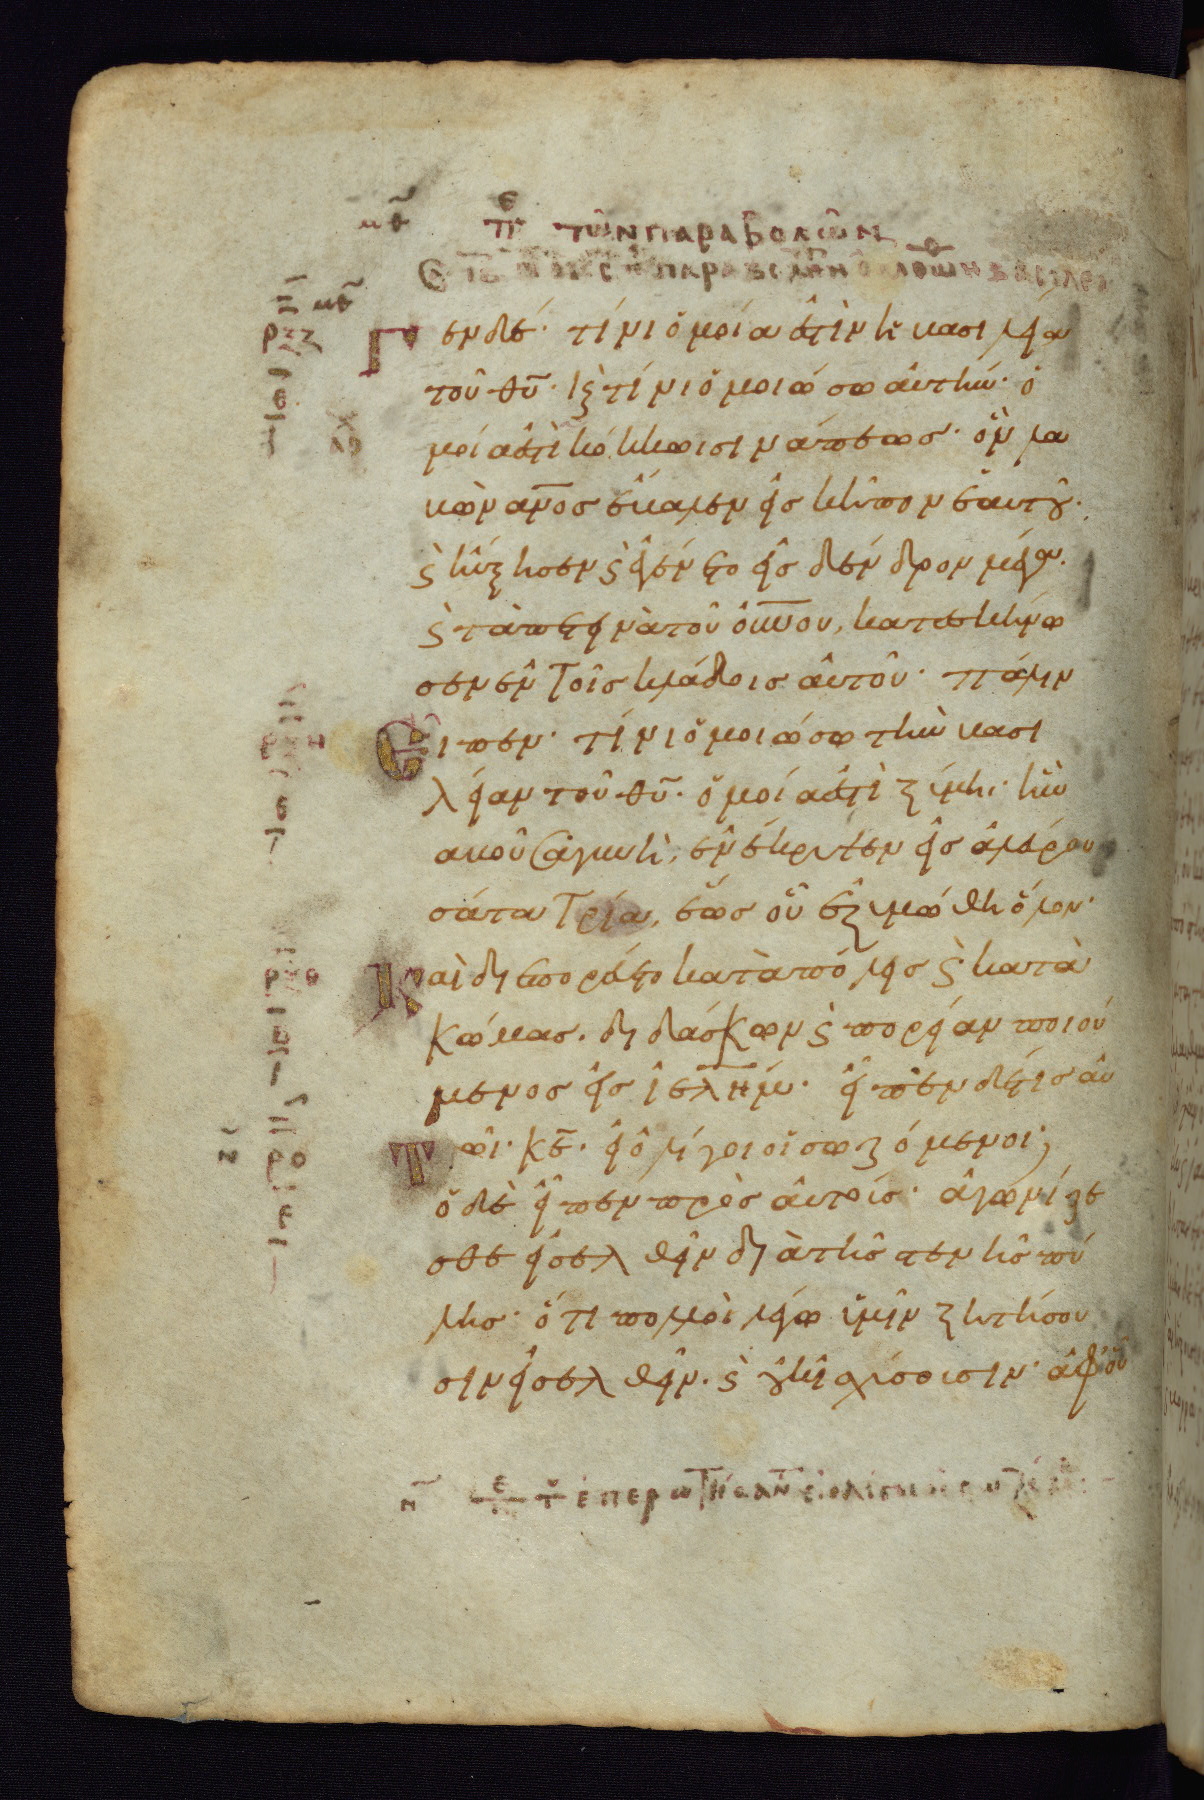 μθ πε τῶν παραβολῶν
μθ
ρξζ
Γεν δέ· τίνι ὁμοία ἐστὶν ἡ βασιλεία
τοῦ θῡ· κ τίνι ὁμοιώσω αὐτήν· ὁ
μοία ἐστὶ κόκκω σινάπεως· ὃν λα
βὼν ᾱνος ἔβαλεν εἰς κῆπον ἑαυτοῦ·
ϛ ηὔξησεν ϛ ἐγένετο εἰς δένδρον μέγα·
ϛ τὰ πετεινὰ τοῦ οὐ̅νου, κατεσκήνω
σεν ἐν τοῖς κλάδοις αὐτοῦ· πάλιν
Εἶπεν· τίνι ὁμοιώσω τὴν βασι
λείαν τοῦ θῡ· ὁμοία ἐστὶ ζύμη· ἣν
λαβοῦσα γυνὴ, ἐνέκρυψεν εἰς ἀλεύρου
σάτα τρία, ἕως οὗ ἐζυμώθη ὅλον·
Καὶ διεπορεύετο κατὰ πόλεις ϛ κατὰ
κώμας· διδάσκων ϛ πορείαν ποιού
μενος εἰς ἱε̅λημ· εἶπεν δέ τις αὐ
Τῶι· κε̅· εἰ ὀλίγοι οἱ σωζόμενοι;
ὁ δὲ εἶπεν πρὸς αὐτούς· ἀγωνίζε
σθε εἰσελθεῖν διὰ τῆς στενῆς πύ
λης· ὅτι πολλοὶ λέγω ὑμῖν ζητήσου
σιν εἰσελθεῖν· ϛ οὐκ ἰσχύσουσιν· ἀφ' οὗ